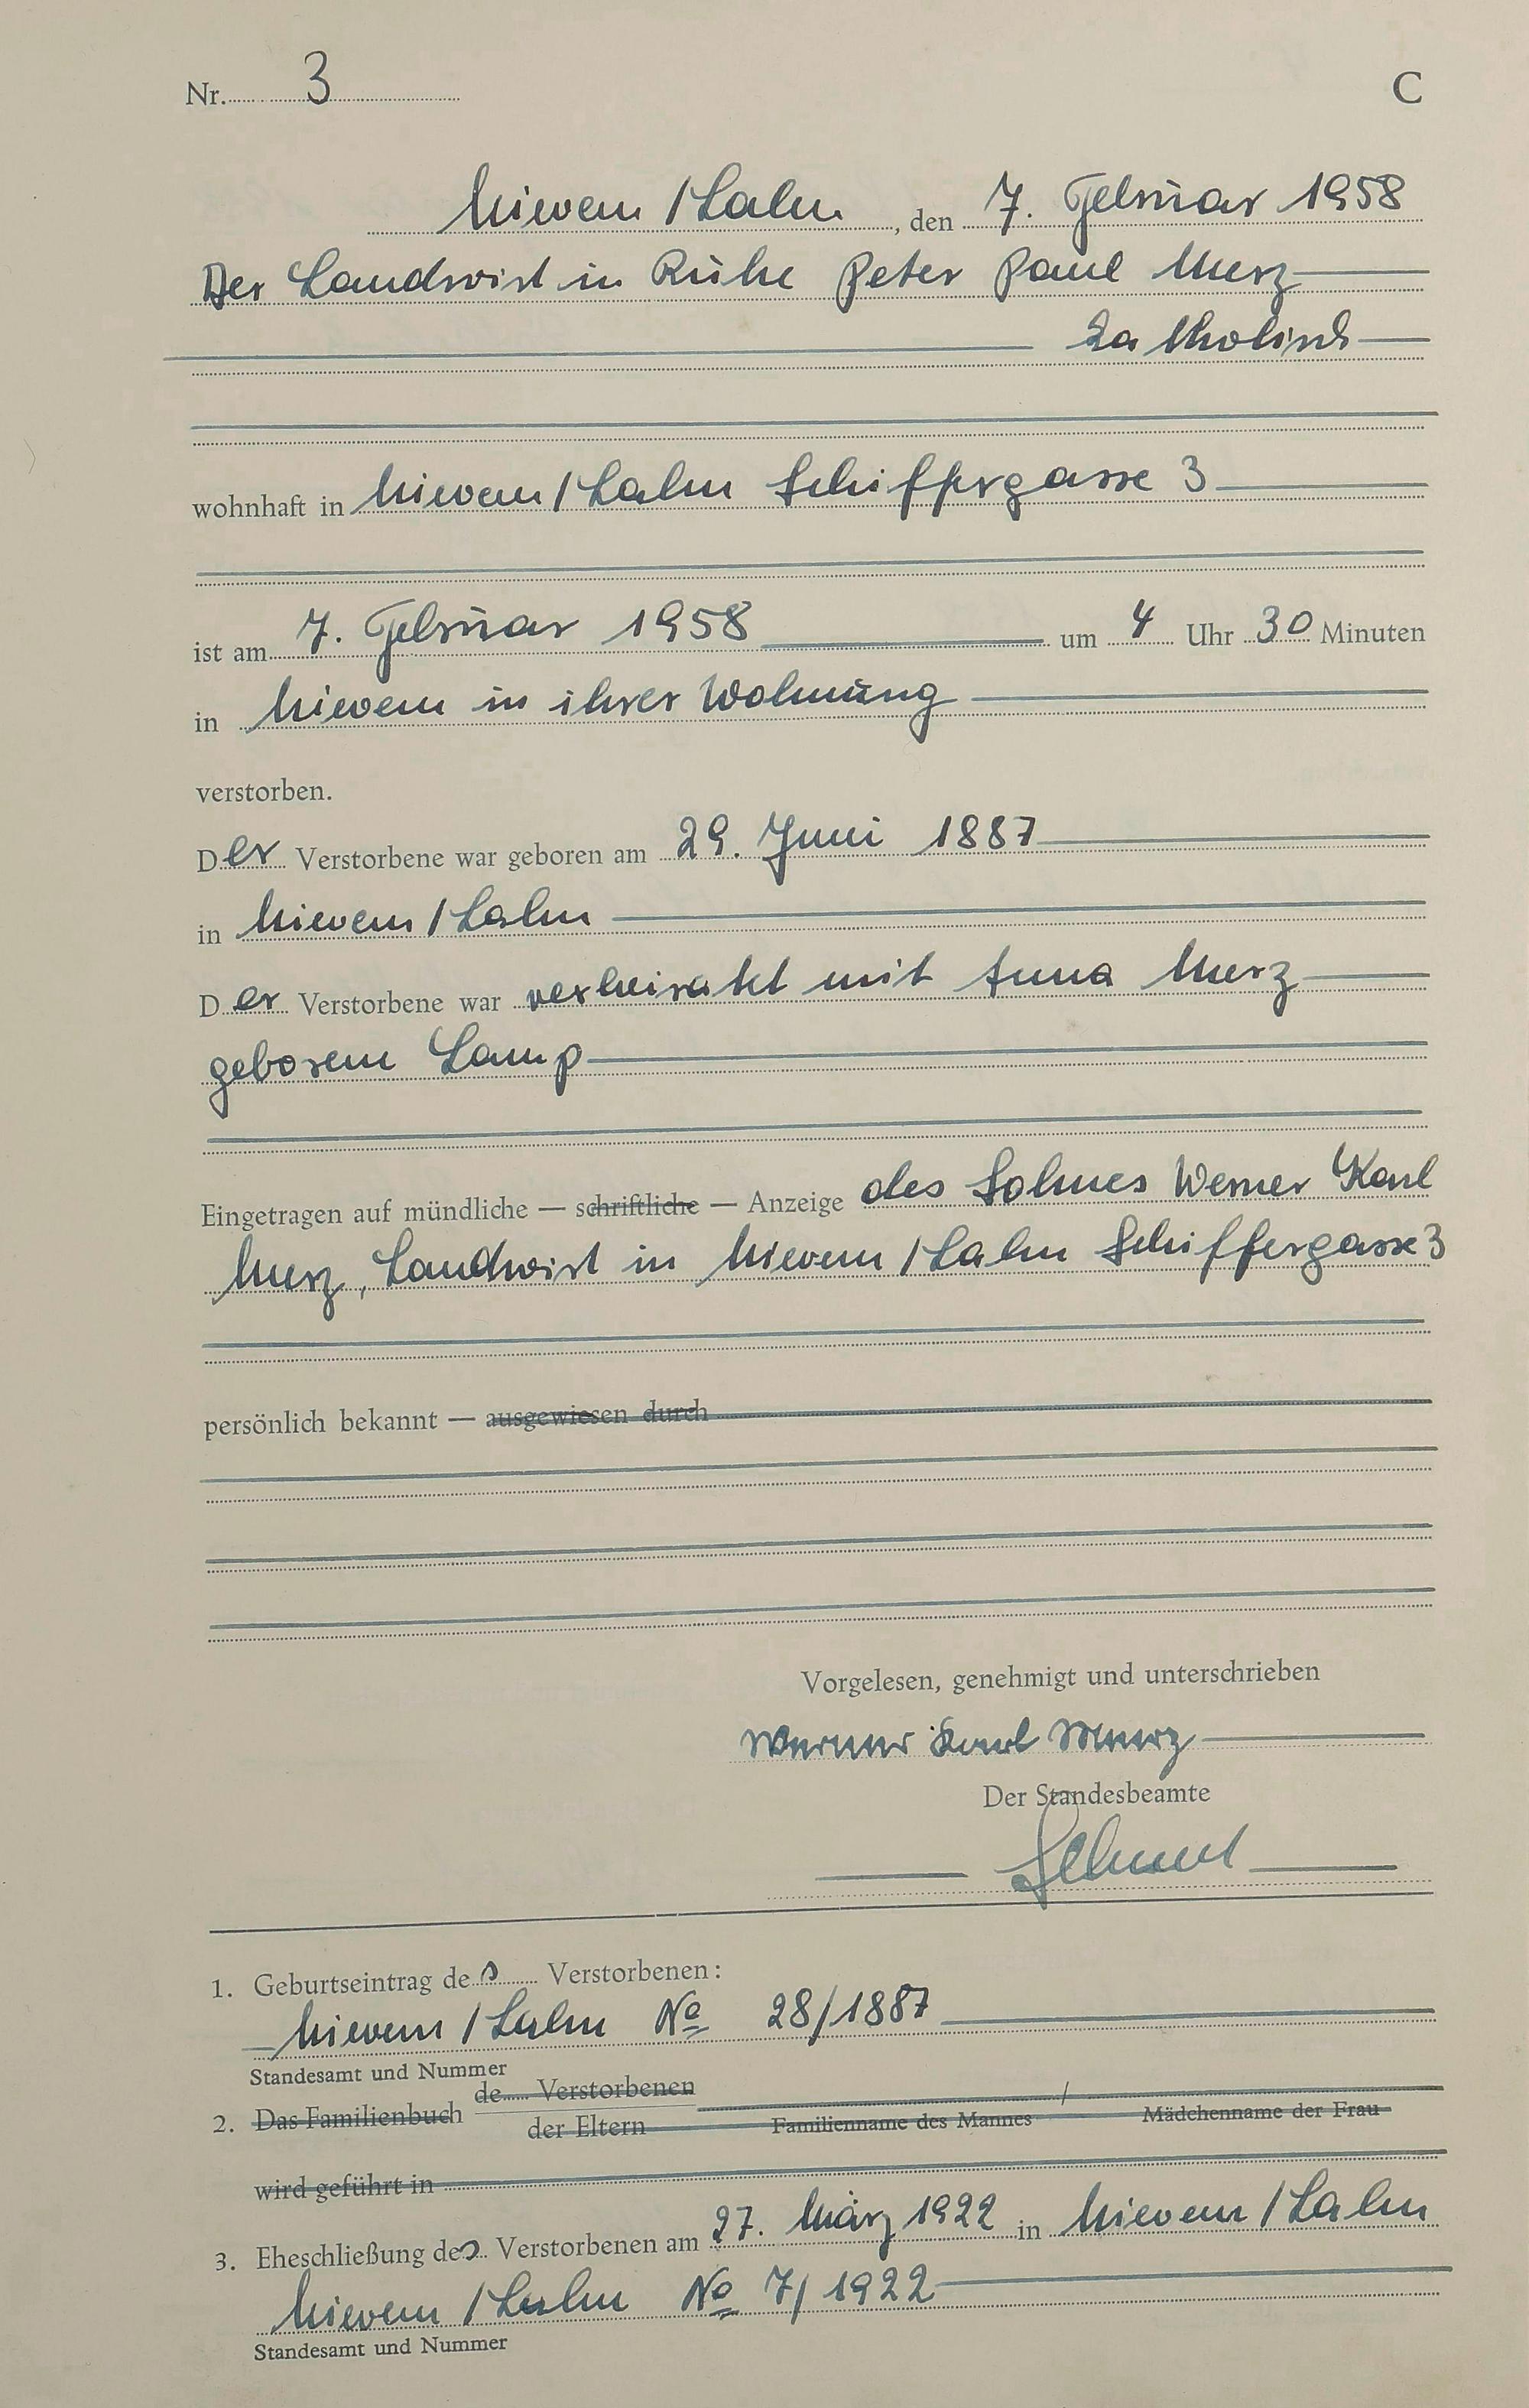 Nr. 3 C
Miesem / Lahn, den 7. Februar 1958
Der Landwirt in Ruhe Peter Paul Merz
katholisch
wohnhaft in / Lahn Schiffergasse 3
ist am 7. Februar 1958 um 4 Uhr 30 Minuten
in in ihrer Wohnung
verstorben.
Der Verstorbene war geboren am 29. Juni 1887
in / Lahn
Der Verstorbene war verheiratet mit Anna Merz
geborene Lamp
Eingetragen auf mündliche — schriftliche — Anzeige des Sohnes Werner Karl
Merz, Landwirt in / Lahn Schiffergasse 3
persönlich bekannt — ausgewiesen durch
Vorgelesen, genehmigt und unterschrieben
Werner Karl Merz
Der Standesbeamte
1. Geburtseintrag des Verstorbenen:
/ Lahn No 28/1887
Standesamt und Nummer
2. Das Familienbuch de Verstorbenen /
der Eltern Familienname des Mannes Mädchenname der Frau
wird geführt in
3. Eheschließung des Verstorbenen am 27. März 1922 in / Lahn
/ Lahn No 7/1922
Standesamt und Nummer